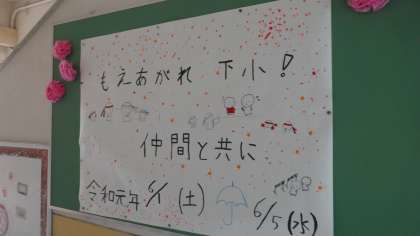 もえあがれ 下小!
仲間と共に
令和元年 6/1 (土)
6/5(水)